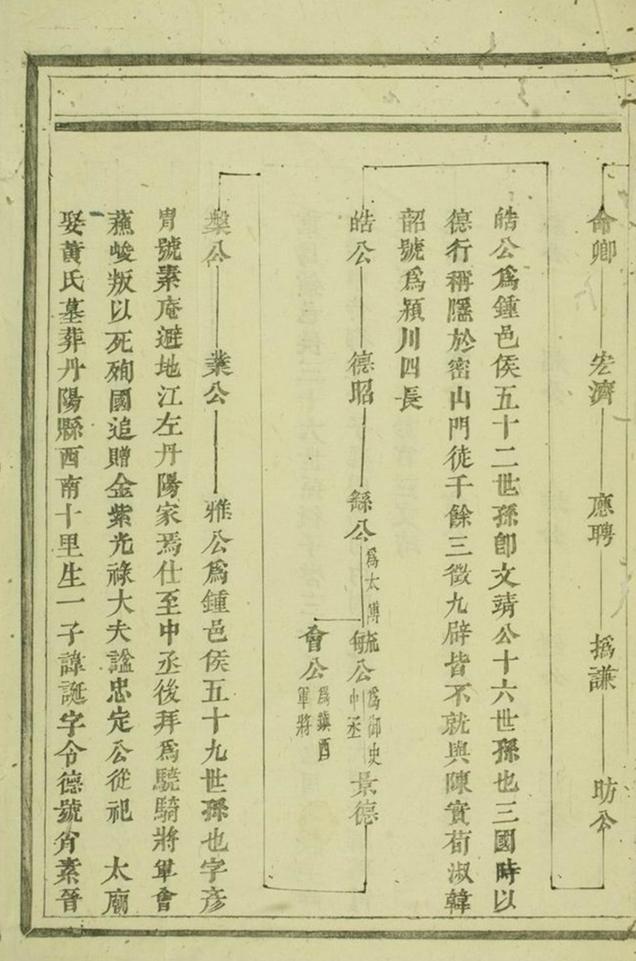 命卿 宏濟 應聘 撝謙 昉公
皓公為鍾邑侯五十二世孫卽文靖公十六世孫也三國時以
德行稱隱於密山門徒千餘三徵九辟皆不就與陳實荀淑韓
韶號為潁川四長
皓公 德昭 繇公為太傅 毓公為御史中丞 景德
會公為鎮酉將軍
槃公 業公 雅公為鍾邑侯五十九世孫也字彥
冑號素庵避地江左丹陽家焉仕至中丞後拜為驍騎將軍會
蘓峻叛以死殉國追贈金紫光祿大夫謚忠定公從祀 太廟
娶黃氏墓葬丹陽縣西南十里生一子諱誕字令德號肖素晉